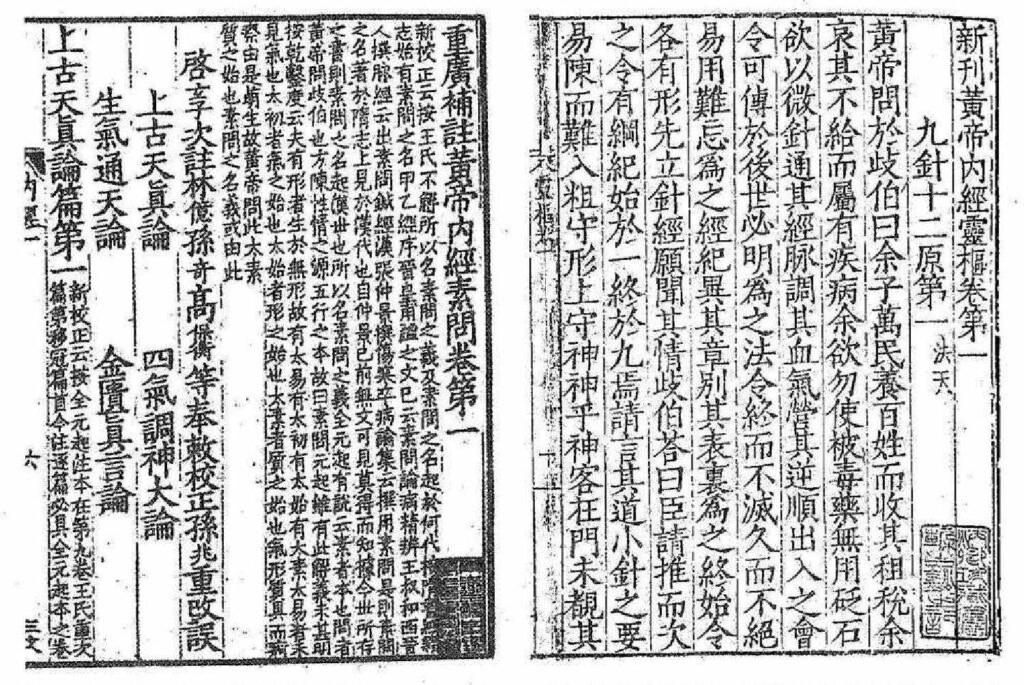 新刊黃帝內經靈樞卷第一
九針十二原第一 法天
黃帝問於歧伯曰余子萬民養百姓而收其租稅余
哀其不給而屬有疾病余欲勿使被毒藥無用砭石
欲以微針通其經脉調其血氣營其逆順出入之會
令可傳於後世必明為之法令終而不滅久而不絕
易用難忘為之經紀異其章別其表裏為之終始令
各有形先立針經願聞其情歧伯荅曰臣請推而次
之令有綱紀始於一終於九焉請言其道小針之要
易陳而難入粗守形上守神神乎神客在門未覩其
重廣補註黃帝內經素問卷第一
新校正云按王氏不解所以名素問之義及素問之名起於何代按隋書經籍
志始有素問之名甲乙經序晉皇甫謐之文已云素問論病精辨王叔和西晉
人撰脉經云出素問鍼經漢張仲景撰傷寒卒病論集云撰用素問是則素問
之名著於隋志上見於漢代也自仲景已前無文可見莫得而知據今世所存
之書則素問之名起漢世也所以名素問之義全元起有說云素者本也問者
黃帝問歧伯也方陳性情之源五行之本故曰素問元起雖有此解義未甚明
按乾鑿度云夫有形者生於無形故有太易有太初有太始有太素太易者未
見氣也太初者氣之始也太始者形之始也太素者質之始也氣形質具而痾
瘵由是萌生故黃帝問此太素
質之始也素問之名義或由此
啓玄子次註林億孫奇高保衡等奉敕校正孫兆重改誤
上古天真論 四氣調神大論
生氣通天論 金匱真言論
上古天眞論篇第一 新校正云按全元起注本在第九卷王氏重次
篇第移冠篇首今注逐篇必具全元起本之卷
內經一
六